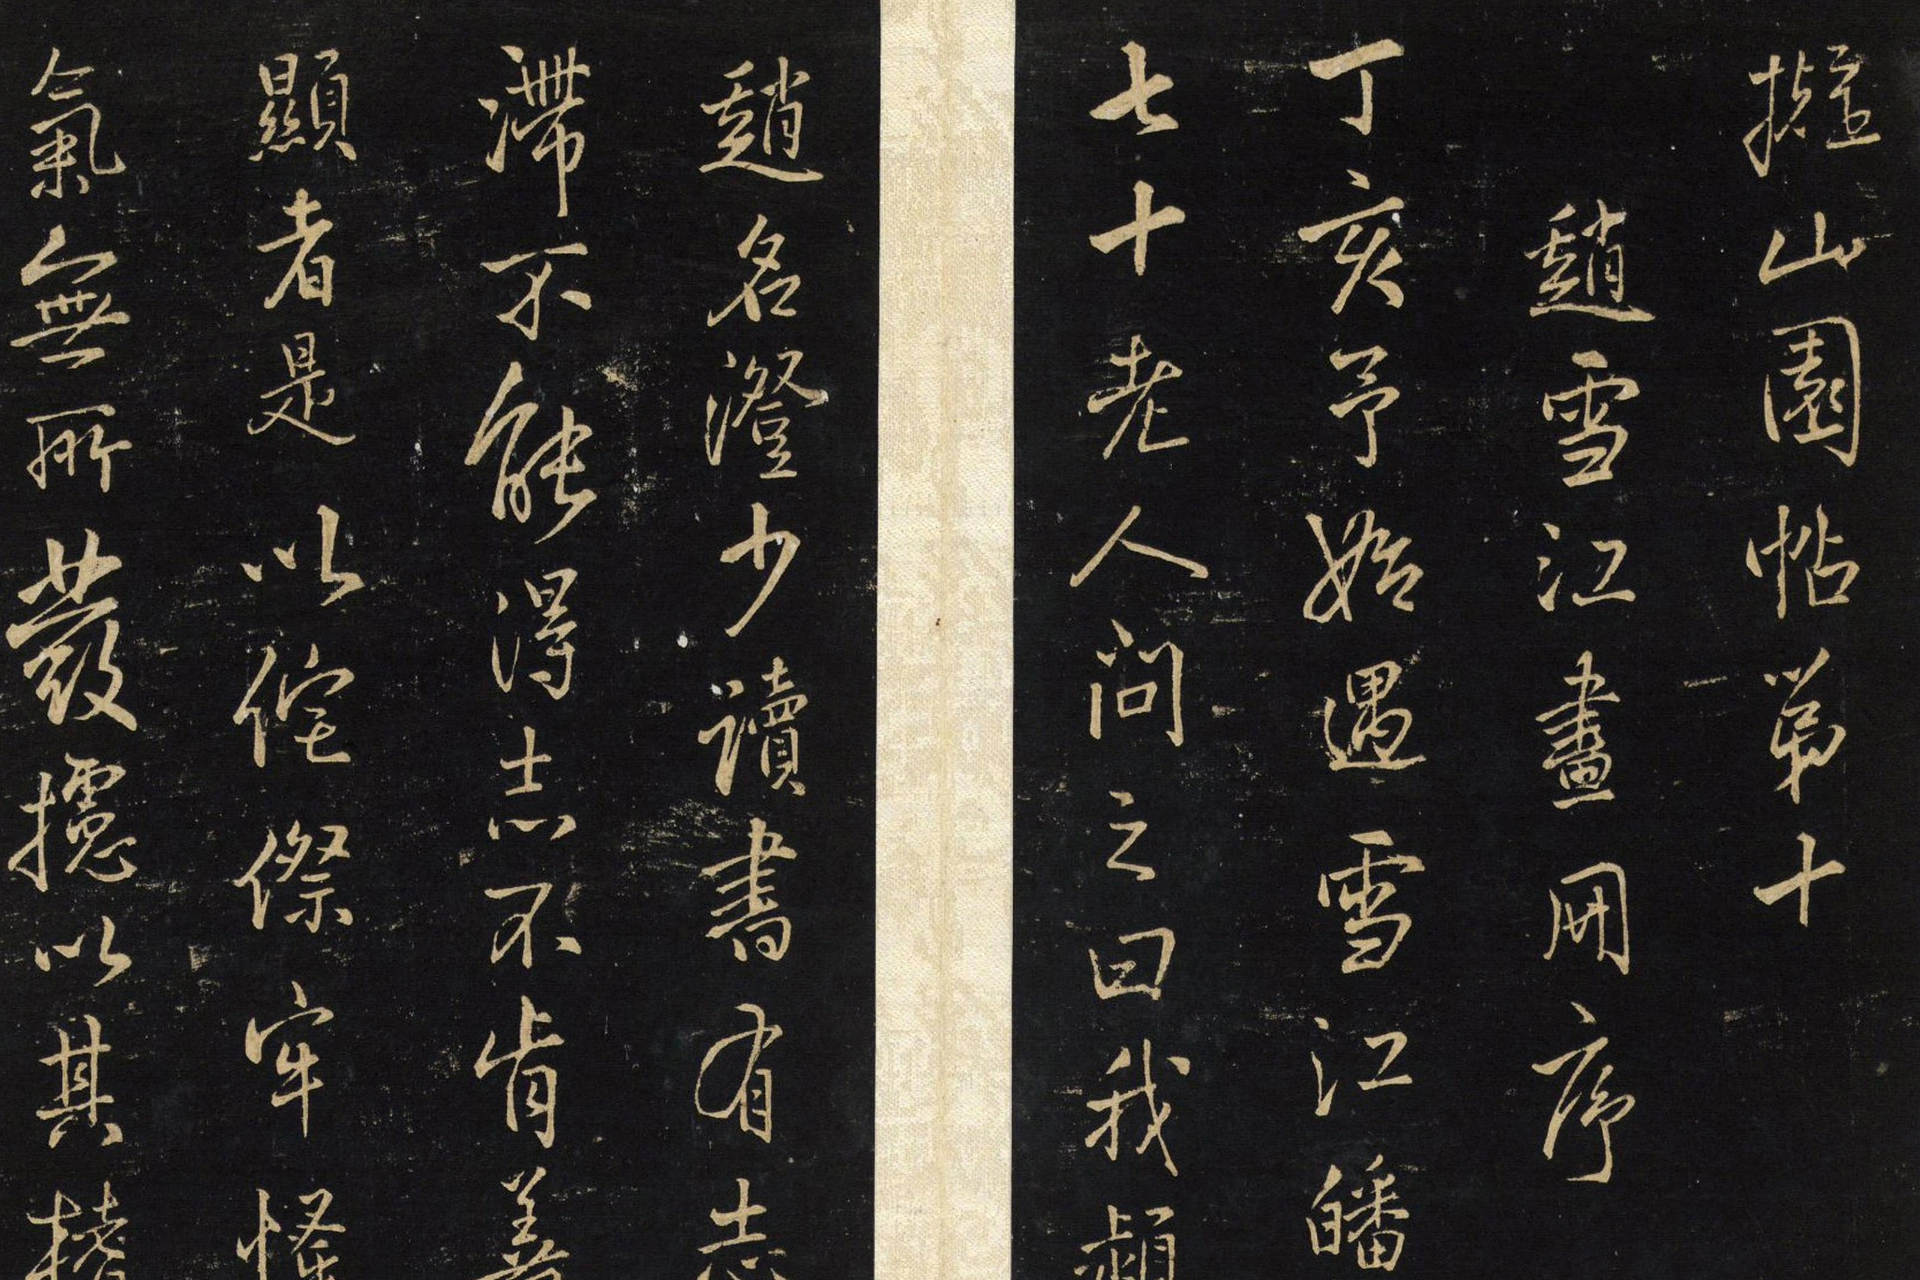 擬山園帖第十
趙雪江畫冊序
丁亥予始遇雪江皤
七十老人問之曰我
趙名澄少讀書有志
滯不能得志不肯善
顯者是以侘傺牢
氣無所發攄以其